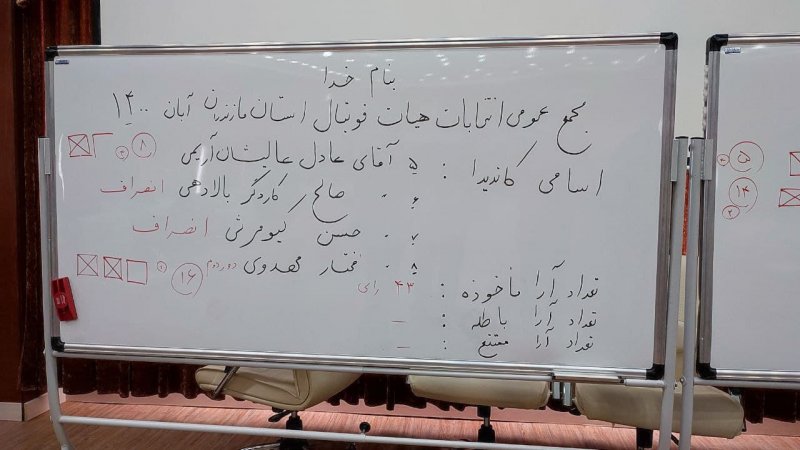 بنام خدا
مجمع عمومی انتخابات هیات فوتبال استان مازندران آبان ۱۴۰۰
اسامی کاندیدا : ۵ آقای عادل عالیشان آریمی ۸
۶ " صالح کاردگر بالادهی انصراف
۷ " حسن کیومرثی انصراف
۸ " مختار مهدوی دور دوم ۱۶
تعداد آرا ماخوذه : ۴۳ رای
تعداد آرا باطله : –
تعداد آرا ممتنع : –
۵
۱۴